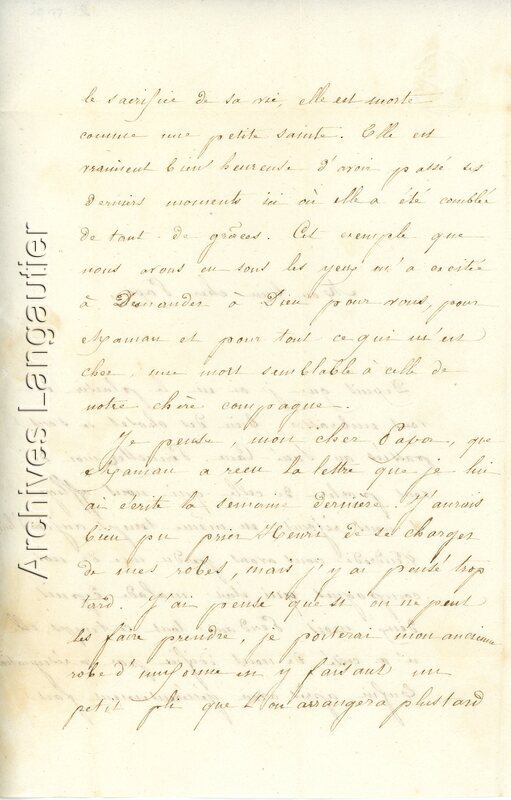 le sacrifice de sa vie, elle est morte
comme une petite sainte. Elle est
vraiment bien heureuse d'avoir passé ses
derniers moments ici où elle a été comblée
de tant de grâces. Cet exemple que
nous avons eu sous les yeux m'a excitée
à Demander à Dieu pour vous, pour
Maman et pour tout ce qui m'est
cher, une mort semblable à celle de
notre chère compagne.
Je pense, mon cher Papa, que
Maman a reçu la lettre que je lui
ai écrite la semaine dernière. J'aurais
bien pu prier Henri de se charger
de mes robes, mais j'y ai pensé trop
tard. J'ai pensé que si on ne peut
les faire prendre, je porterai mon ancienne
robe d'uniforme en y faisant un
petit pli que l'on arrangera plus tard
Archives Langautier